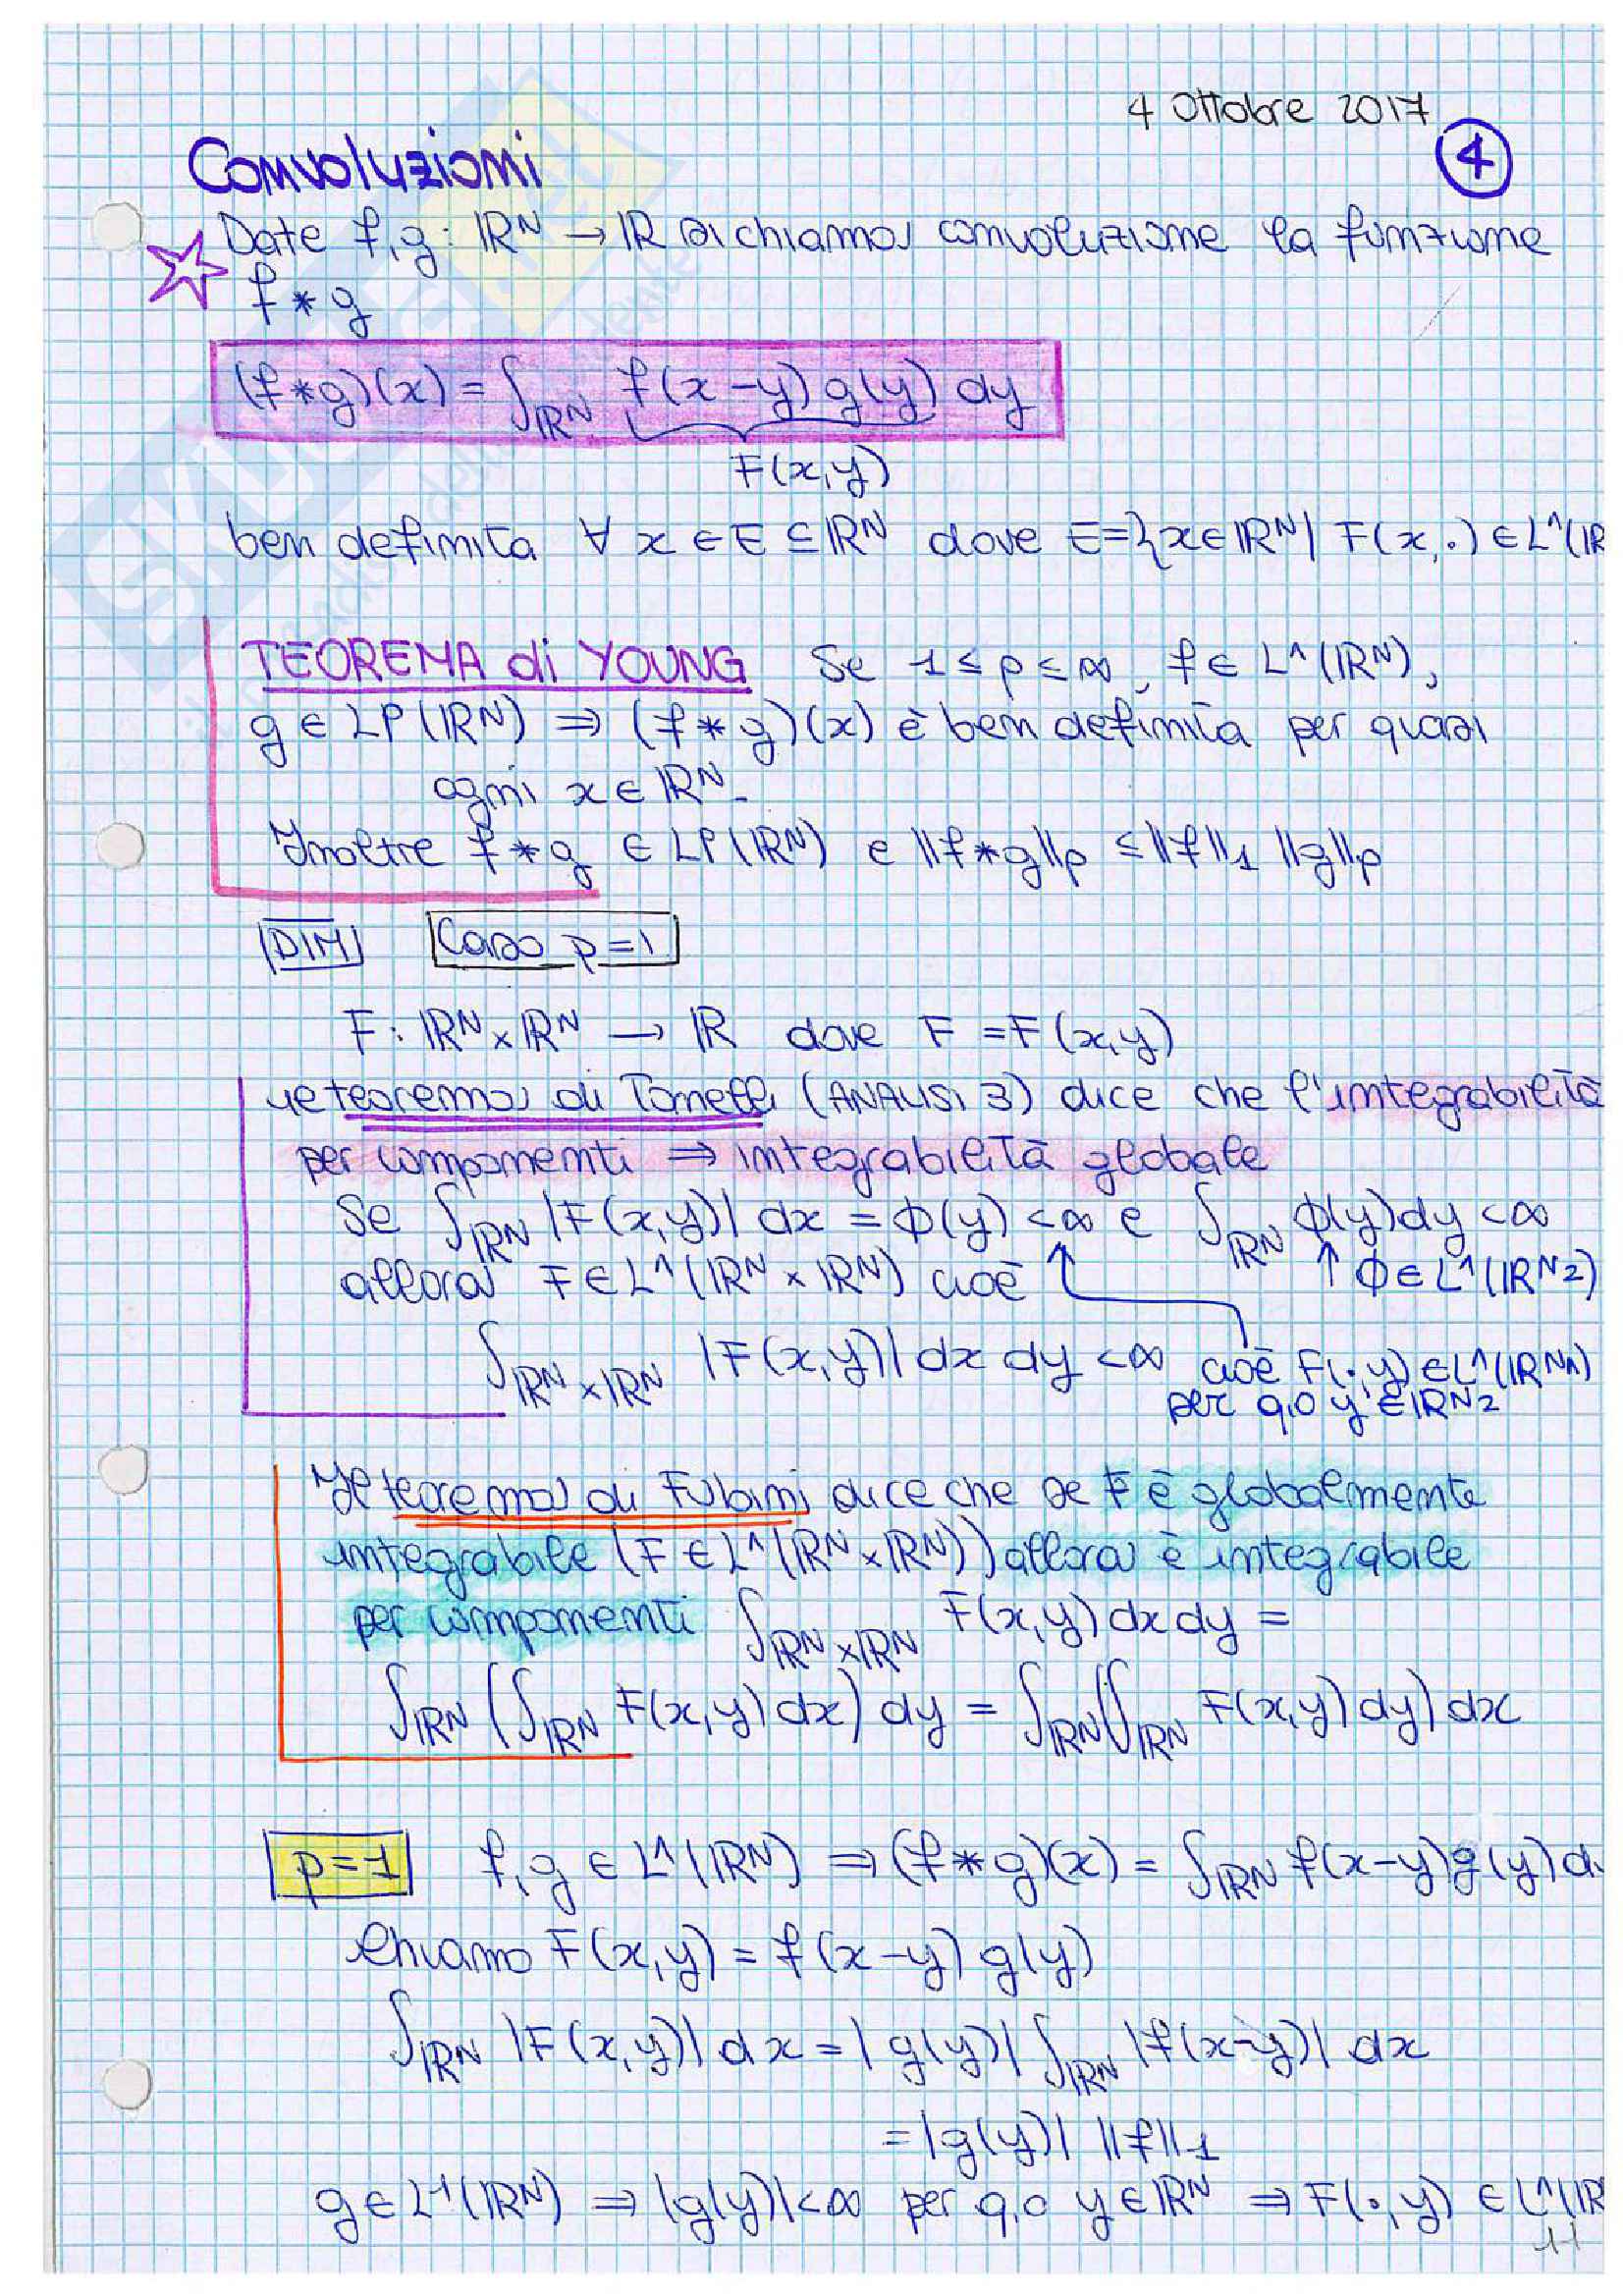 4 Ottobre 2017
4
Convoluzioni
Date f,g: ℝᴺ → ℝ si chiama convoluzione la funzione
f * g
(f*g)(x) = ∫_ℝᴺ f(x-y) g(y) dy
F(x,y)
ben definita ∀ x ∈ E ⊆ ℝᴺ dove E={x∈ℝᴺ| F(x,·) ∈ L¹(ℝ
TEOREMA di YOUNG Se 1 ≤ p ≤ ∞, f ∈ L¹(ℝᴺ),
g ∈ Lᵖ(ℝᴺ) ⇒ (f * g)(x) è ben definita per quasi
ogni x ∈ ℝᴺ.
Inoltre f * g ∈ Lᵖ(ℝᴺ) e ||f*g||p ≤ ||f||₁ ||g||p
DIM Caso p=1
F: ℝᴺ × ℝᴺ → ℝ dove F = F(x,y)
Il teorema di Tonelli (ANALISI 3) dice che l'integrabilità
per componenti ⇒ integrabilità globale
Se ∫_ℝᴺ |F(x,y)| dx = ϕ(y) < ∞ e ∫_ℝᴺ ϕ(y) dy < ∞
allora F ∈ L¹(ℝᴺ × ℝᴺ) cioè ↑ ϕ ∈ L¹(ℝᴺ²)
∫_ℝᴺ×ℝᴺ |F(x,y)| dx dy < ∞ cioè F(·,y) ∈ L¹(ℝᴺ¹)
per q.o y ∈ ℝᴺ²
Il teorema di Fubini dice che se F è globalmente
integrabile (F ∈ L¹(ℝᴺ × ℝᴺ)) allora è integrabile
per componenti ∫_ℝᴺ×ℝᴺ F(x,y) dx dy =
∫_ℝᴺ (∫_ℝᴺ F(x,y) dx) dy = ∫_ℝᴺ (∫_ℝᴺ F(x,y) dy) dx
p=1 f,g ∈ L¹(ℝᴺ) ⇒ (f*g)(x) = ∫_ℝᴺ f(x-y) g(y) d
Chiamo F(x,y) = f(x-y) g(y)
∫_ℝᴺ |F(x,y)| dx = |g(y)| ∫_ℝᴺ |f(x-y)| dx
= |g(y)| ||f||₁
g ∈ L¹(ℝᴺ) ⇒ |g(y)| < ∞ per q.o y ∈ ℝᴺ ⇒ F(·,y) ∈ L¹(ℝ
11